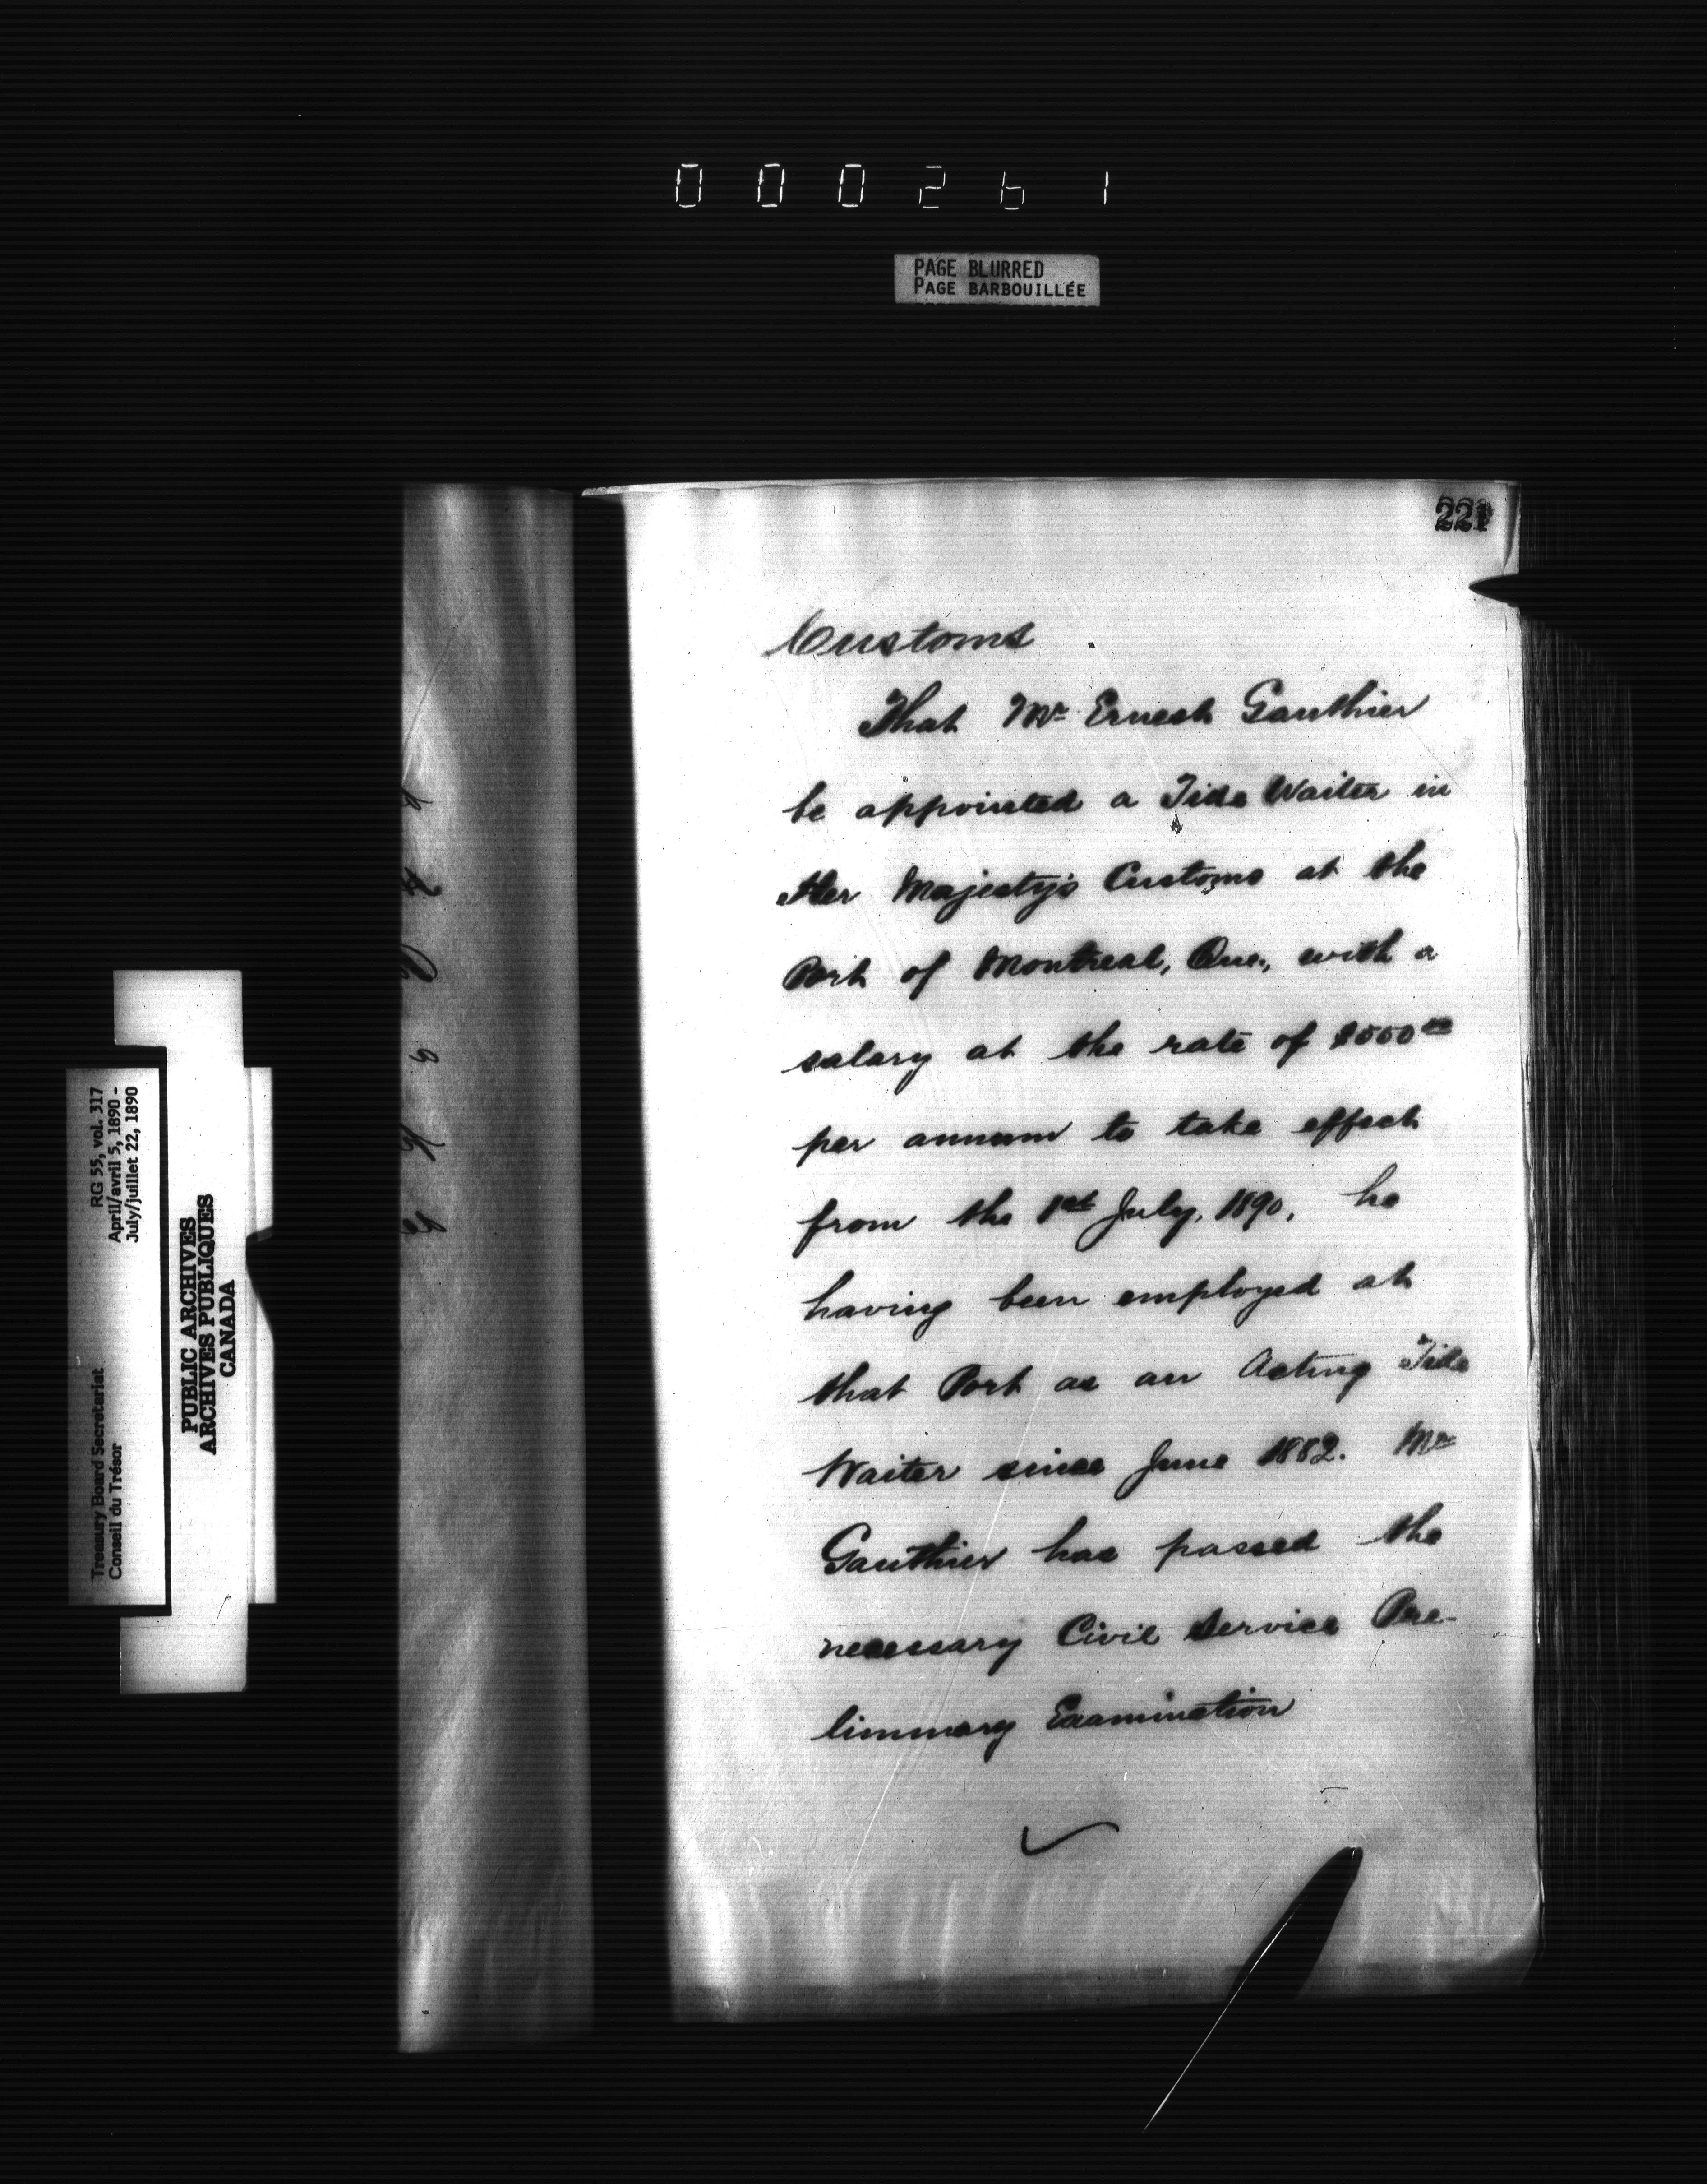 000261
PAGE BLURRED
PAGE BARBOUILLÉE
221
Customs
That Mr Ernest Gauthier
be appointed a Tide Waiter in
Her Majesty's Customs at the
Port of Montreal, Que., with a
salary at the rate of $500 00
per annum to take effect
from the 1st July, 1890, he
having been employed at
that Port as an Acting Tide
Waiter since June 1882. Mr
Gauthier has passed the
necessary Civil Service Pre-
liminary Examination
Treasury Board Secretariat RG 55, vol. 317
Conseil du Trésor April/avril 5, 1890 -
July/juillet 22, 1890
PUBLIC ARCHIVES
ARCHIVES PUBLIQUES
CANADA